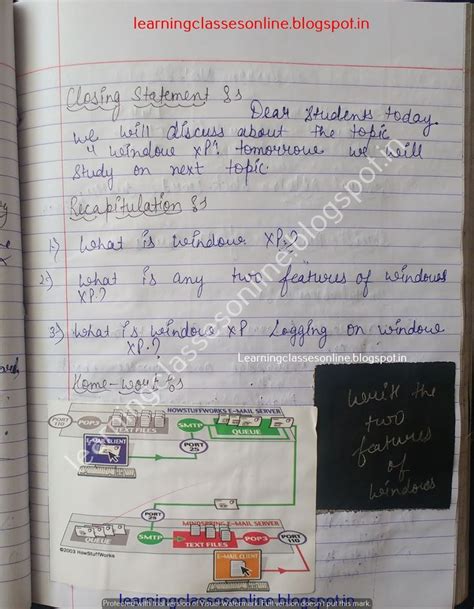 learningclassesonline.blogspot.in
Closing Statement :-
Dear Students today
we will discuss about the topic
" window XP". tomorrow we will
Study on next topic.
Recapitulation :-
1.) What is window XP.?
2.) What is any two features of windows
XP.?
3.) What is window XP Logging on window
XP.?
Learningclassesonline.blogspot.in
Home-work :-
write the
two
features
of
windows
HOWSTUFFWORKS E-MAIL SERVER
PORT 110
POP3
TEXT FILES
SMTP
QUEUE
E-MAIL CLIENT
PORT 25
PORT 25
MINDSPRING E-MAIL SERVER
SMTP
TEXT FILES
POP3
PORT 110
QUEUE
E-MAIL CLIENT
©2003 HowStuffWorks
learningclassesonline.blogspot.in
Protected with trial version of Visual Watermark. Full version doesn't put this mark.
learningclassesonline.blogspot.in